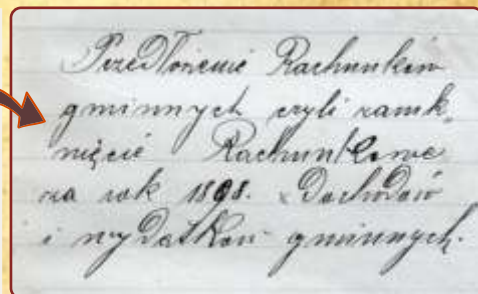 Przedłożenie Rachunków
gminnych czyli zamk-
nięcie Rachunkowe
na rok 1898. Dochodów
i wydatków gminnych.